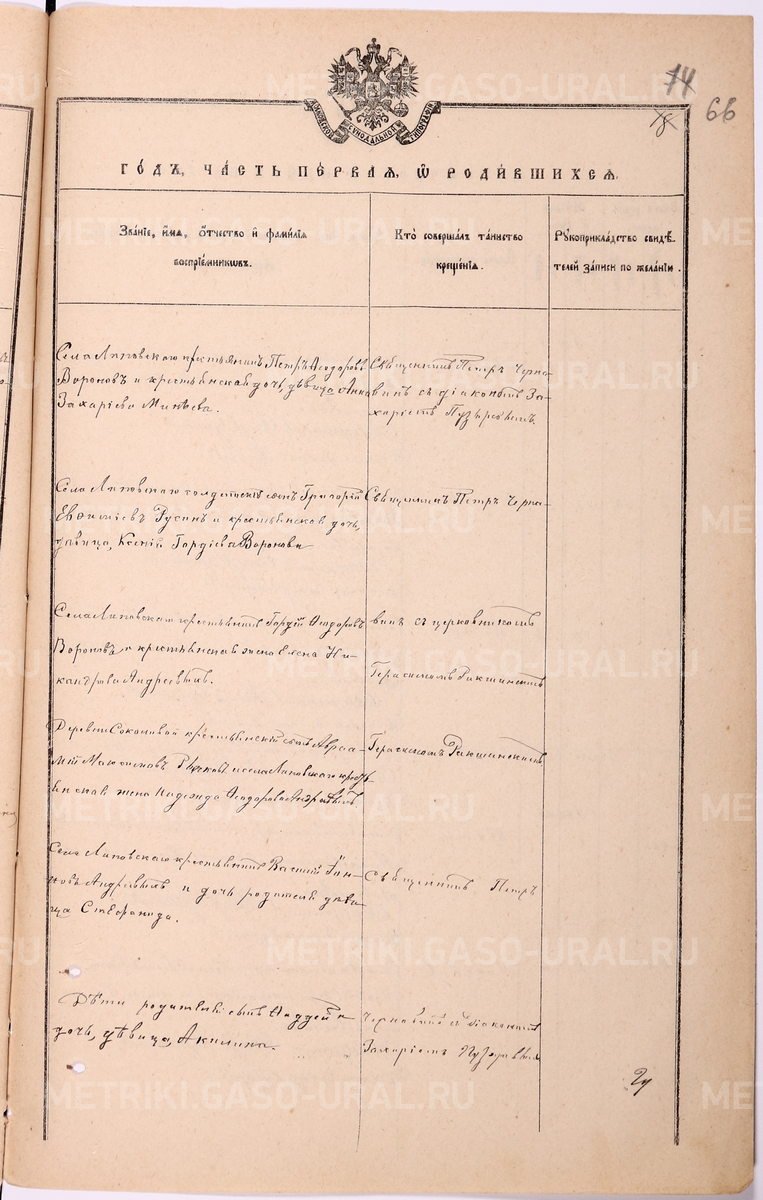 14
18
66
МОСКОВСКОЙ СѴНОДАЛЬНОЙ ТИПОГРАФІИ
ГОДЪ, ЧАСТЬ ПЕРВАЯ, Ѡ РОДИВШИХСЯ.
Званіе, имя, отчество и фамилія
воспріемниковъ.
Кто совершалъ таинство
крещенія.
Рукоприкладство свидѣ-
телей записи по желанію.
Села Липовскаго крестьянинъ Петръ Ѳеодоровъ
Вороновъ и крестьянская дочь, дѣвица Анна
Захаріева Минѣева.
Священникъ Петръ Черна-
винъ съ діакономъ За-
харіемъ Пузыревымъ.
Села Липовскаго солдатскій сынъ Григорій
Евѳиміевъ Русинъ и крестьянская дочь,
дѣвица, Ксенія Гордіева Воронова
Священникъ Петръ Черна-
Села Липовскаго крестьянинъ Гордій Ѳеодоровъ
Вороновъ и крестьянская жена Елена Ни-
кандрова Андреевыхъ.
винъ съ церковникомъ
Герасимомъ
Деревни Соколовой крестьянскій сынъ Авраа-
мій и села Липовскаго кресть-
янская жена Надежда Ѳеодорова Андреевыхъ
Герасимомъ
Села Липовскаго крестьянинъ Василій
Андреевыхъ и дочь родителей дѣви-
ца Стефанида.
Священникъ Петръ
Дѣти родителей сынъ Ѳаддей и
дочь, дѣвица, Акилина.
Чернавинъ съ діакономъ
Захаріемъ Пузыревымъ
METRIKI.GASO-URAL.RU